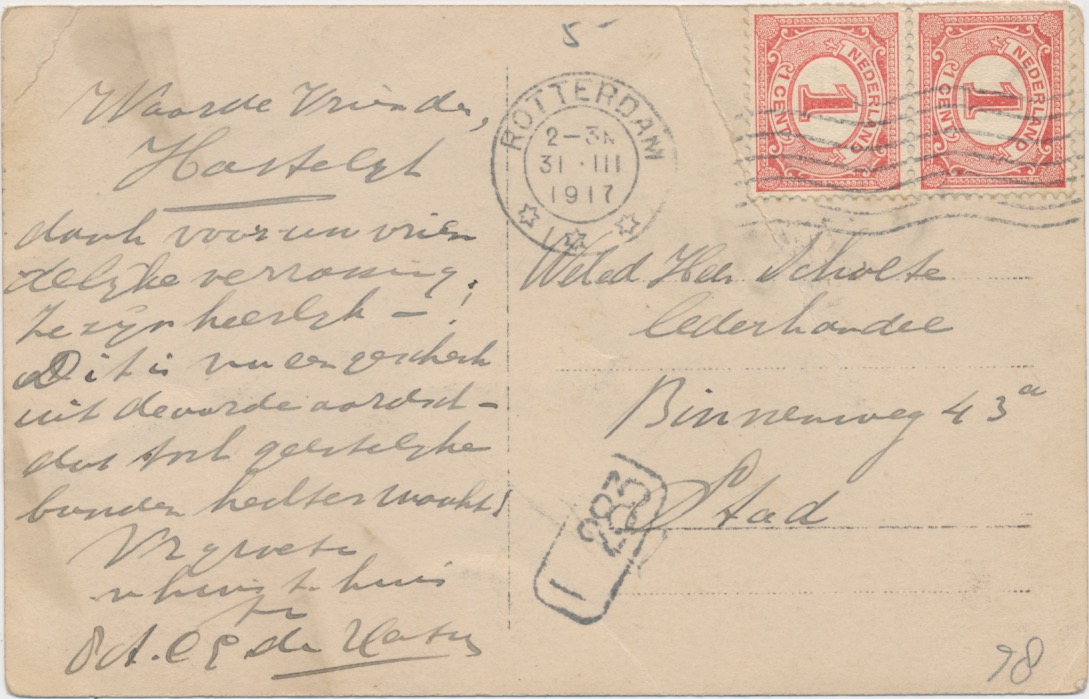 Waarde Vrienden,
Hartelijk
dank voor uw vrien
delijke verrassing;
Ze zijn heerlijk — !
Dit is nu een geschenk
uit de aardsch —
dat toch geestelijke
banden hechter maakt!
Vr groete
v huis t. huis
de
5
ROTTERDAM
2-3N
31 · III
1917
1
NEDERLAND
1
1 CENT
NEDERLAND
1
1 CENT
Weled Heer Scholte
lederhandel
Binnenweg 43a
Stad
283
I
98